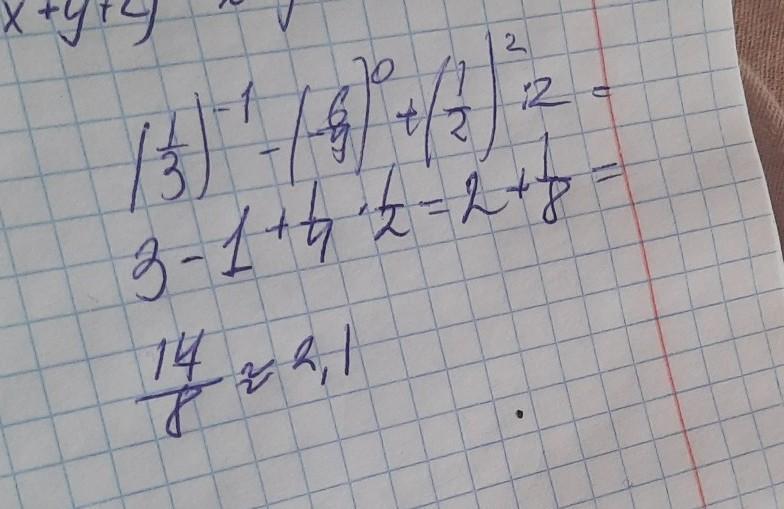 x+y+z)
(1/3)^-1 - (-6/9)^0 + (1/2)^2 :2 =
3 - 1 + 1/4 · 1/2 = 2 + 1/8 =
14/8 ≈ 2,1